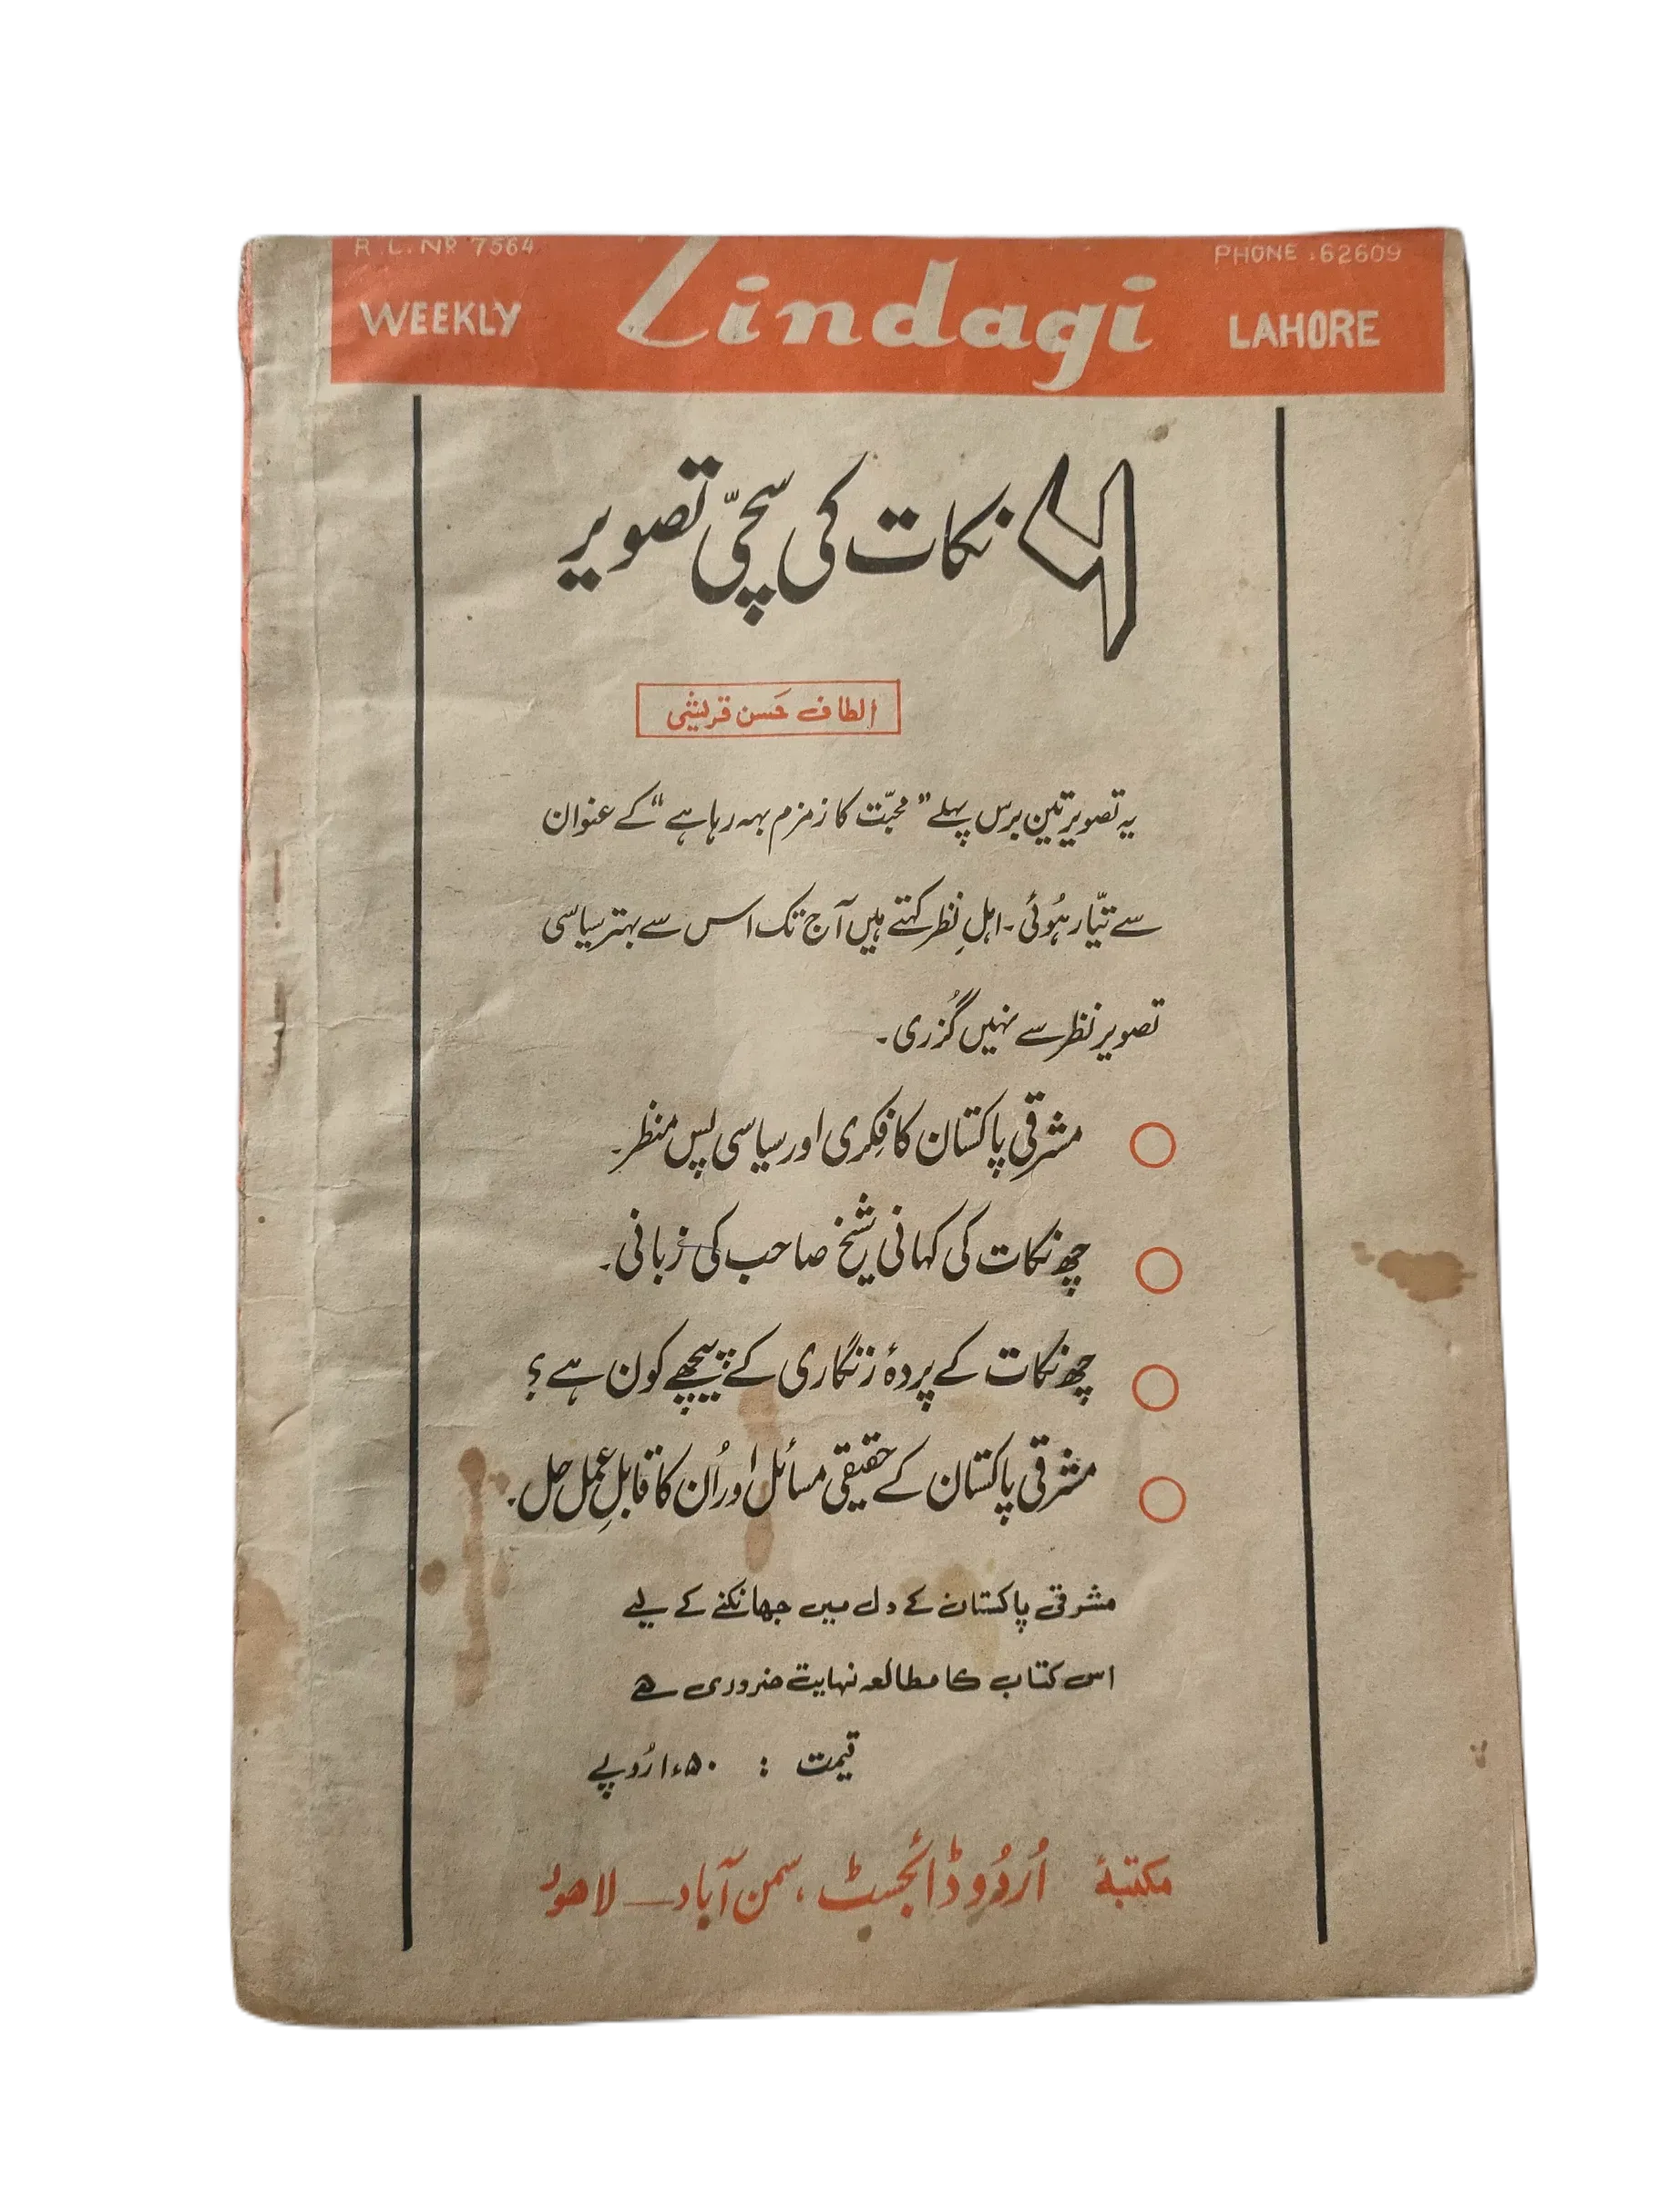 R.L. No 7564
PHONE : 62609
WEEKLY Zindagi LAHORE
۶ نکات کی سچّی تصویر
الطاف حَسن قریشی
یہ تصویر تین برس پہلے "محبّت کا زمزم بہہ رہا ہے" کے عنوان
سے تیّار ہُوئی۔ اہلِ نظر کہتے ہیں آج تک اس سے بہتر سیاسی
تصویر نظر سے نہیں گُزری۔
مشرقی پاکستان کا فِکری اور سیاسی پس منظر۔
چھ نکات کی کہانی شیخ صاحب کی زبانی۔
چھ نکات کے پردۂ زنگاری کے پیچھے کون ہے؟
مشرقی پاکستان کے حقیقی مسائل اور اُن کا قابلِ عمل حل۔
مشرقی پاکستان کے دل میں جھانکنے کے لیے
اس کتاب کا مطالعہ نہایت ضروری ہے
قیمت : ۱٫۵۰ رُوپے
مکتبۂ اُردُو ڈائجسٹ، سمن آباد — لاھور